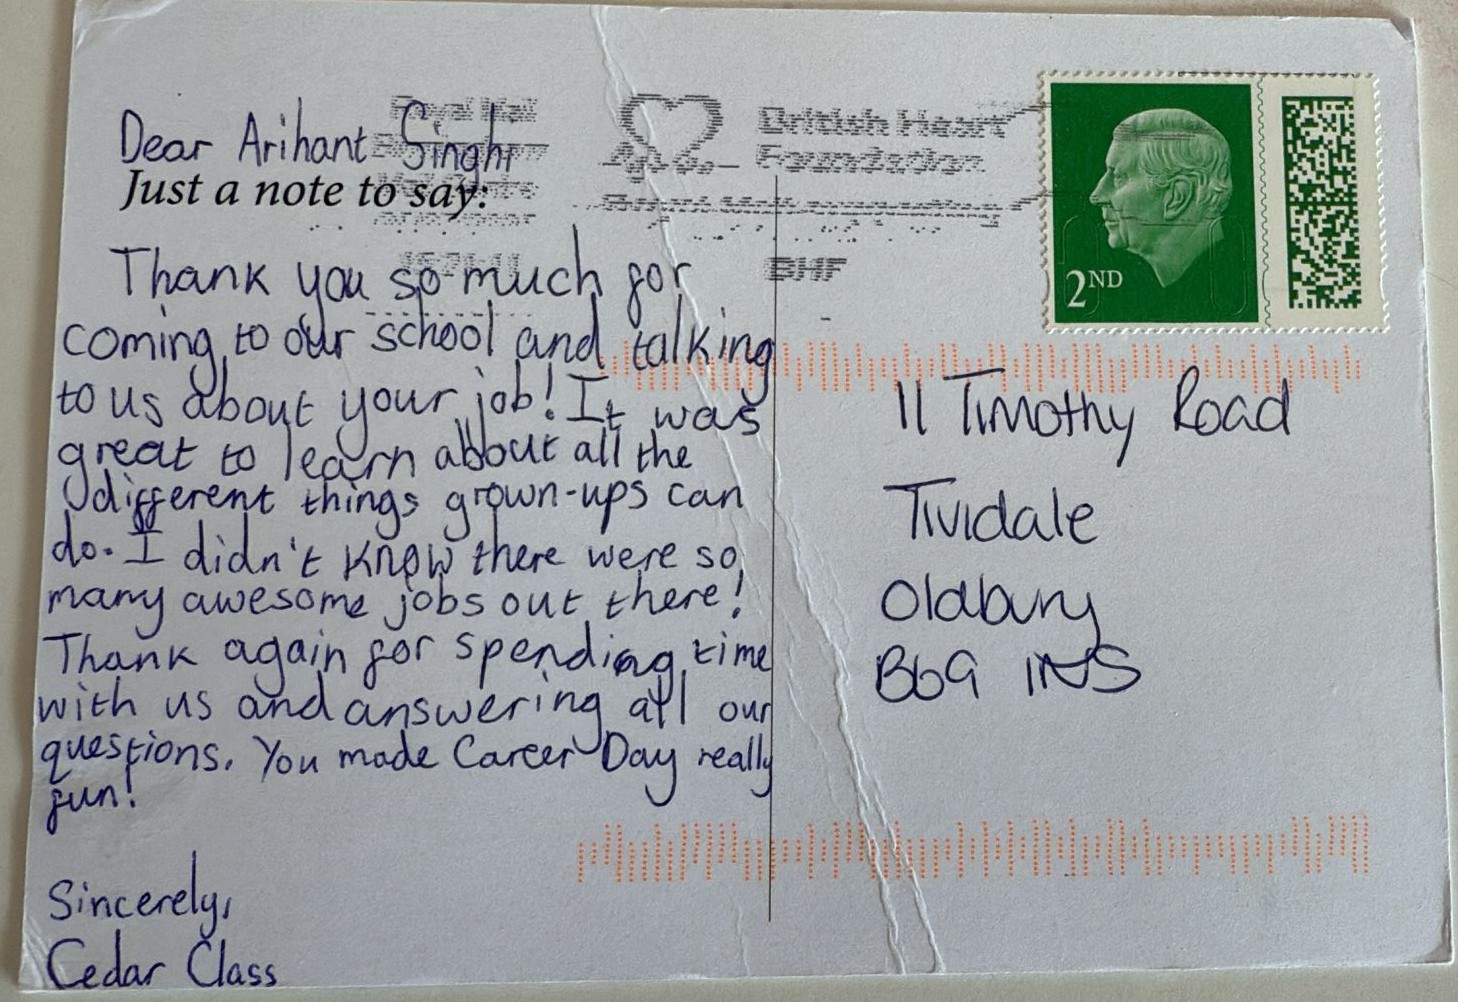 Dear Arihant Singhi
Just a note to say:
Thank you so much for
coming to our school and talking
to us about your job! It was
great to learn about all the
different things grown-ups can
do. I didn't know there were so
many awesome jobs out there!
Thank again for spending time
with us and answering all our
questions. You made Career Day really
fun!
Sincerely,
Cedar Class
Royal Mail
British Heart
Foundation
BHF
2ND
11 Timothy Road
Tividale
Oldbury
B69 1NS